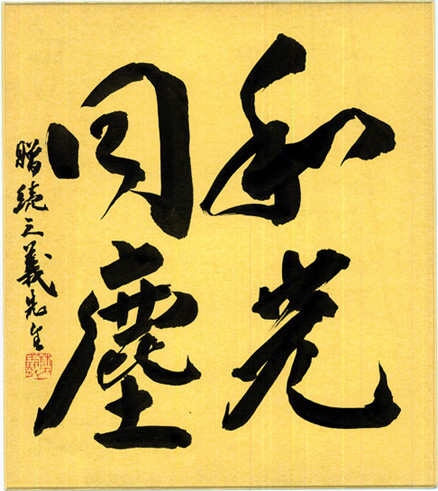 和光
同塵
贈続三義先生